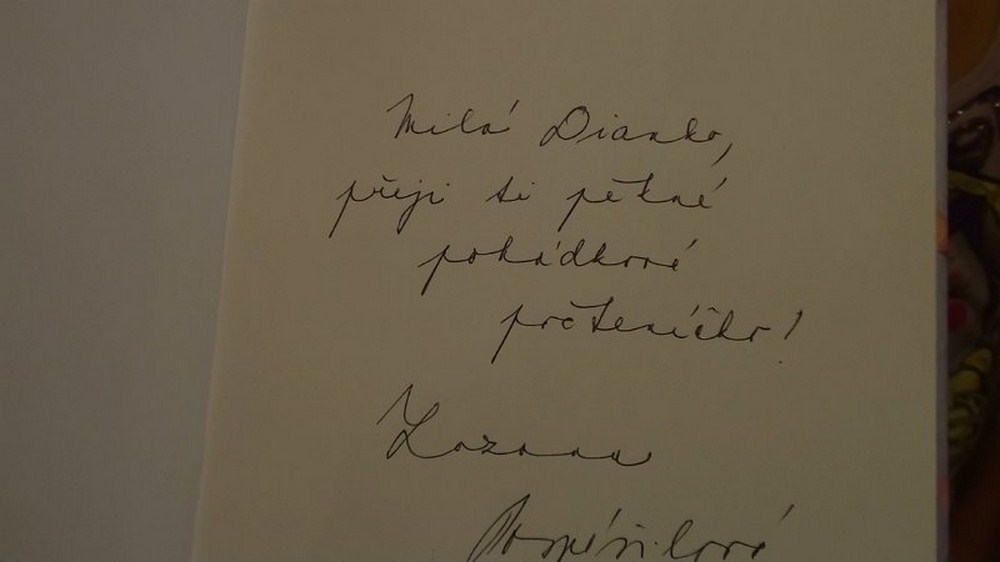 Milá Dianko,
přeji ti pěkné
pohádkové
počteníčko!
Zuzana
Pospíšilová